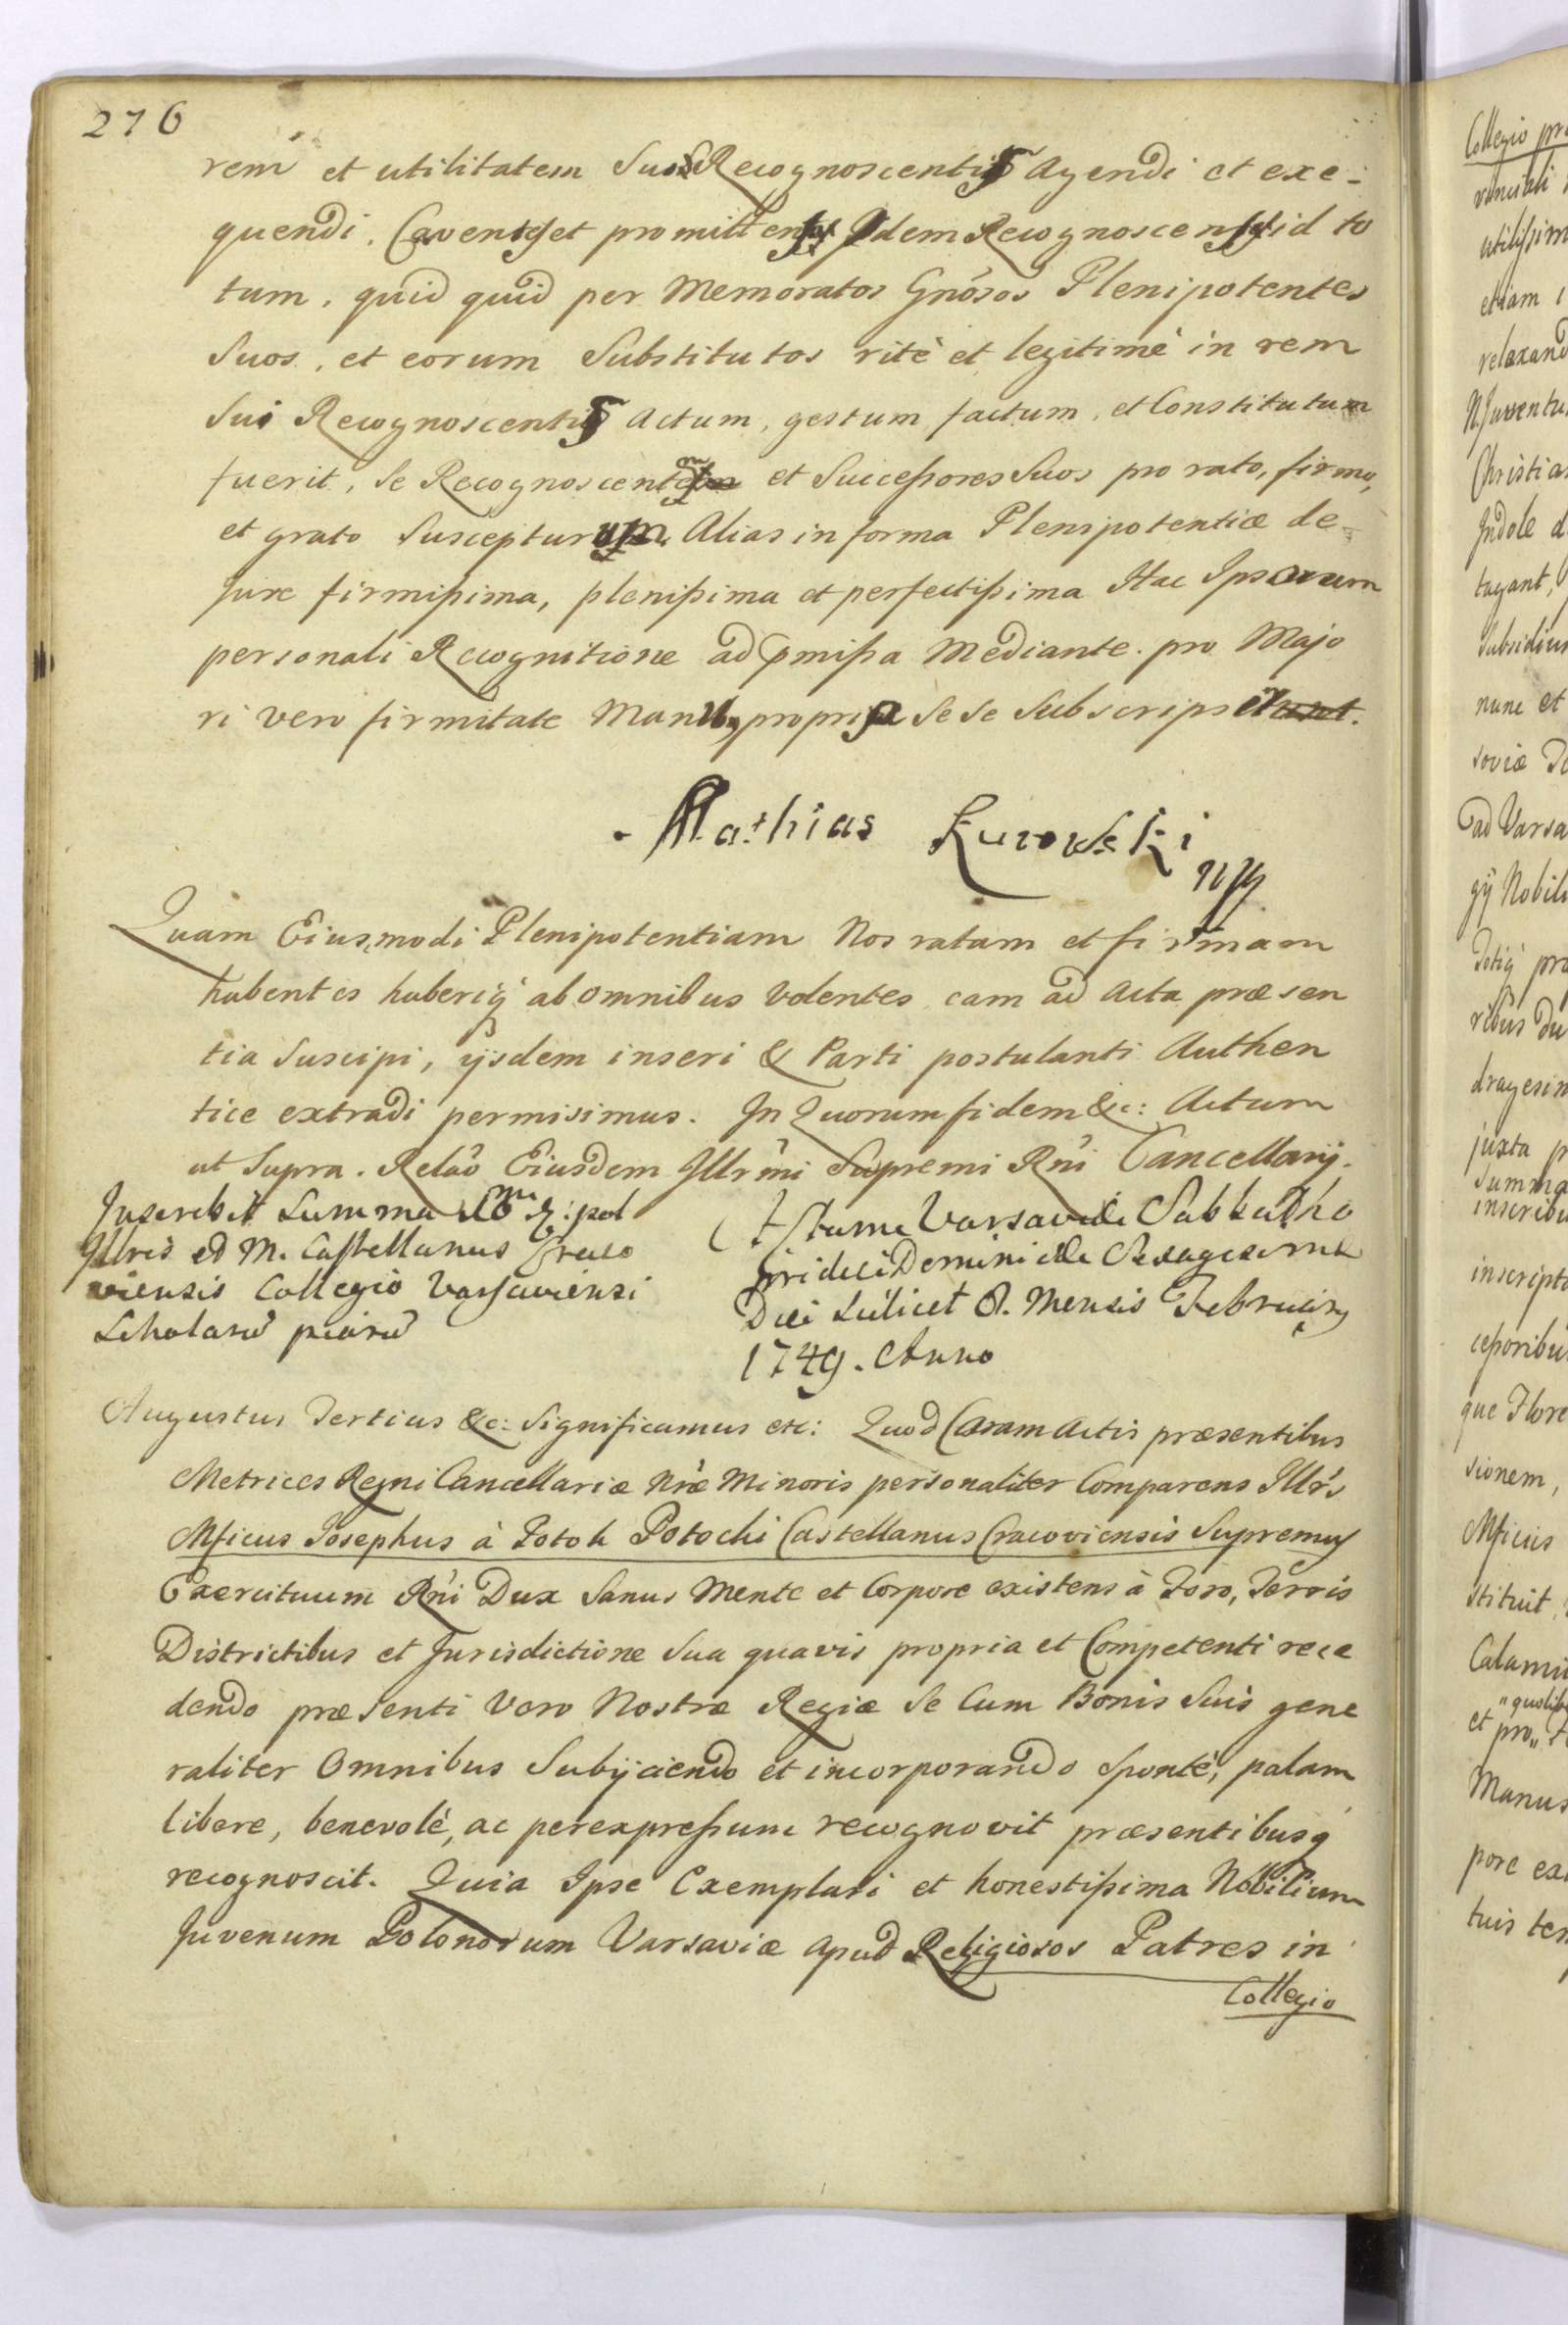 276
rem et utilitatem Sui Recognoscentis Agendi et exe-
quendi. Cavens et promittens Idem Recognoscens id to
tum, quid quid per Memoratos Gnósos Plenipotentes
Suos, et eorum Substitutos ritè et legitimè in rem
Sui Recognoscentis Actum, gestum, factum, et Constitutum
fuerit, Se Recognoscentem et Succeßores Suos pro rato, firmo,
et grato Suscepturum. Alias in forma Plenipotentiæ de
Jure firmißima, plenißima et perfectißima Hac Ipsorum
personali Recognitione ad pmißa Mediante. pro Majo
ri vero firmitate Manu propria Se se Subscripsit.
Mathias Kurowski
mp
Quam Eiusmodi Plenipotentiam Nos ratam et firmam
habentes haberiq́ ab omnibus Volentes eam ad Acta præsen
tia Suscipi, ijsdem inseri & Parti postulanti Authen
tice extradi permisimus. In Quorum fidem &c: Actum
ut Supra. Relaõ Eiusdem Illrmi Supremi Rni Cancellarij.
Inscribit Summa
Illris ed M. Castellanus Craco
viensis Collegio Varsaviensi
Scholarũ piarũ
Actum Varsaviæ Sabbatho
pridie Dominicæ Sexagesimæ
Die Scilicet 8. Mensis Februarij
1749. Anno
Augustus Tertius &c: Significamus etc: Quod Coram Actis præsentibus
Metrices Regni Cancellariæ Nræ Minoris personaliter Comparens Illrs
Mficus Josephus à Potok Potocki Castellanus Cracoviensis Supremus
Exercituum Rni Dux Sanus Mente et Corpore existens à Foro, Terris
Districtibus et Jurisdictione Sua quavis propria et Competenti rece
dendo præsenti Vero Nostræ Regiæ Se Cum Bonis Suis gene
raliter Omnibus Subijciendo et incorporando Spontè, palam
libere, benevolè, ac per expreßum recognovit præsentibusq́
recognoscit. Quia Ipse Exemplari et honestißima Nobilium
Juvenum Polonorum Varsaviæ Apud Religiosos Patres in
Collegio